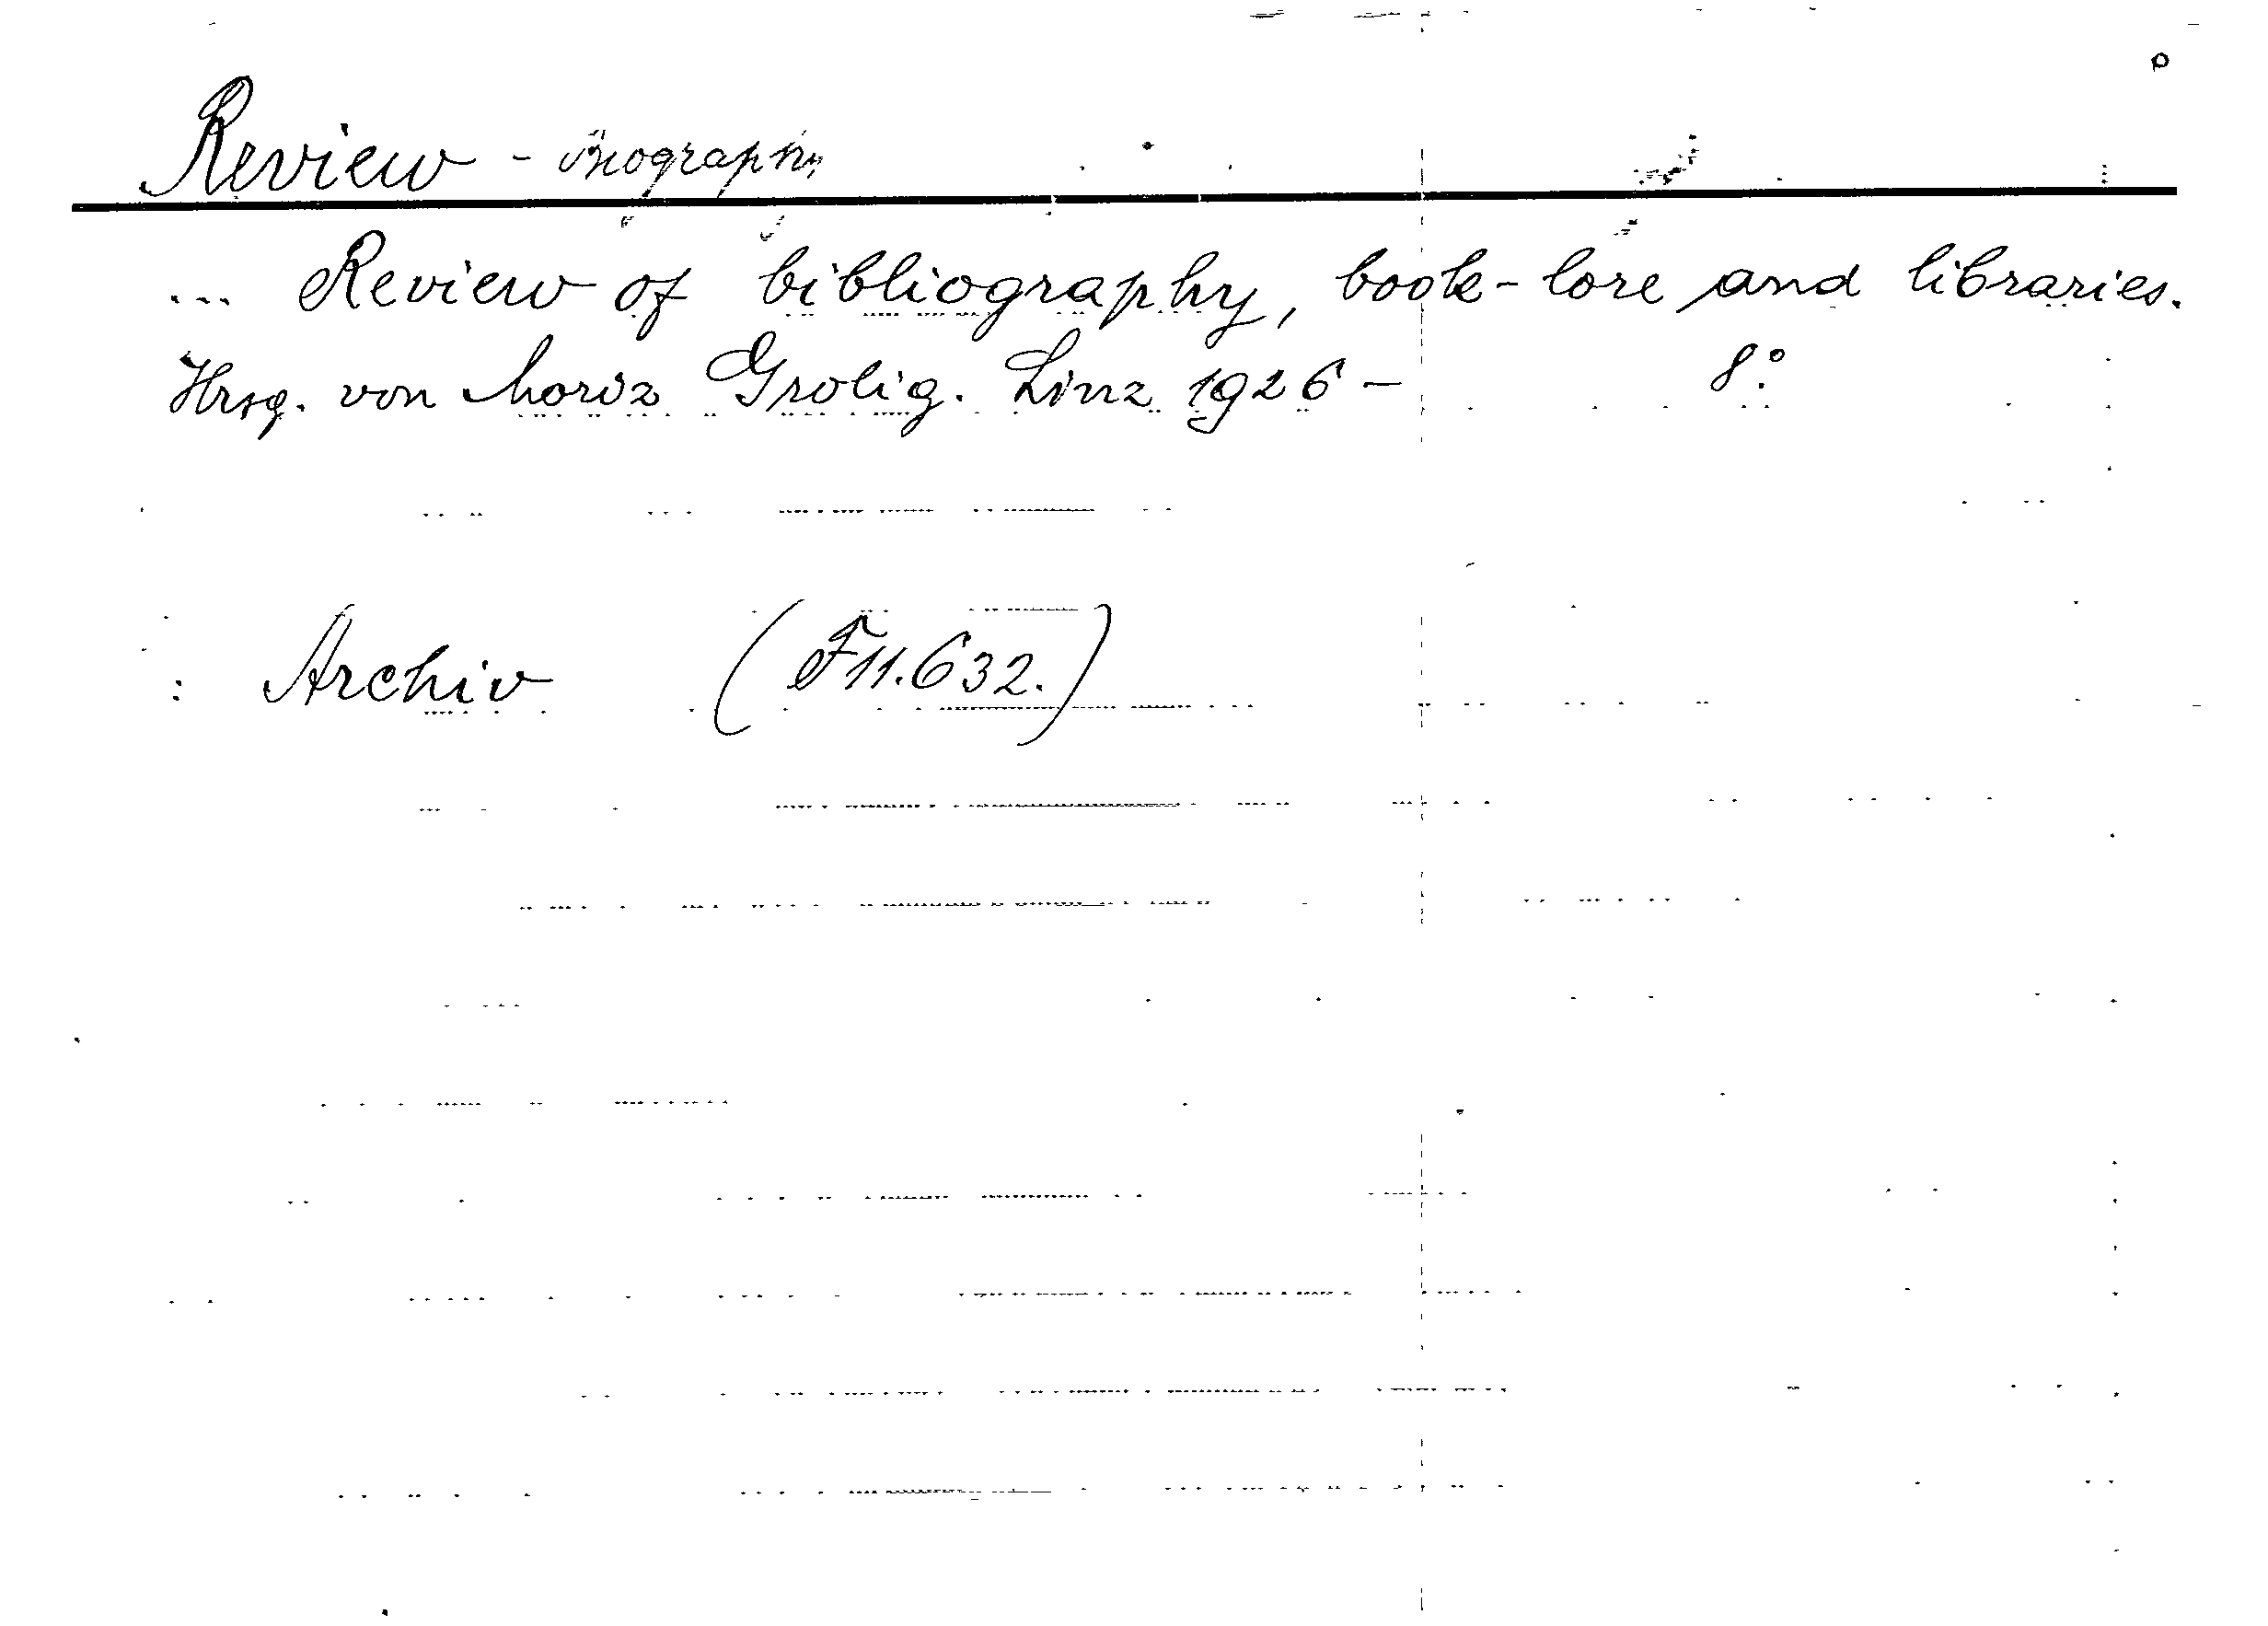 Review - Biography
... Review of bibliography, book-lore and libraries.
Hrsg. von Moriz Grolig. Linz 1926 - 8°.
: Archiv (F11.632.)